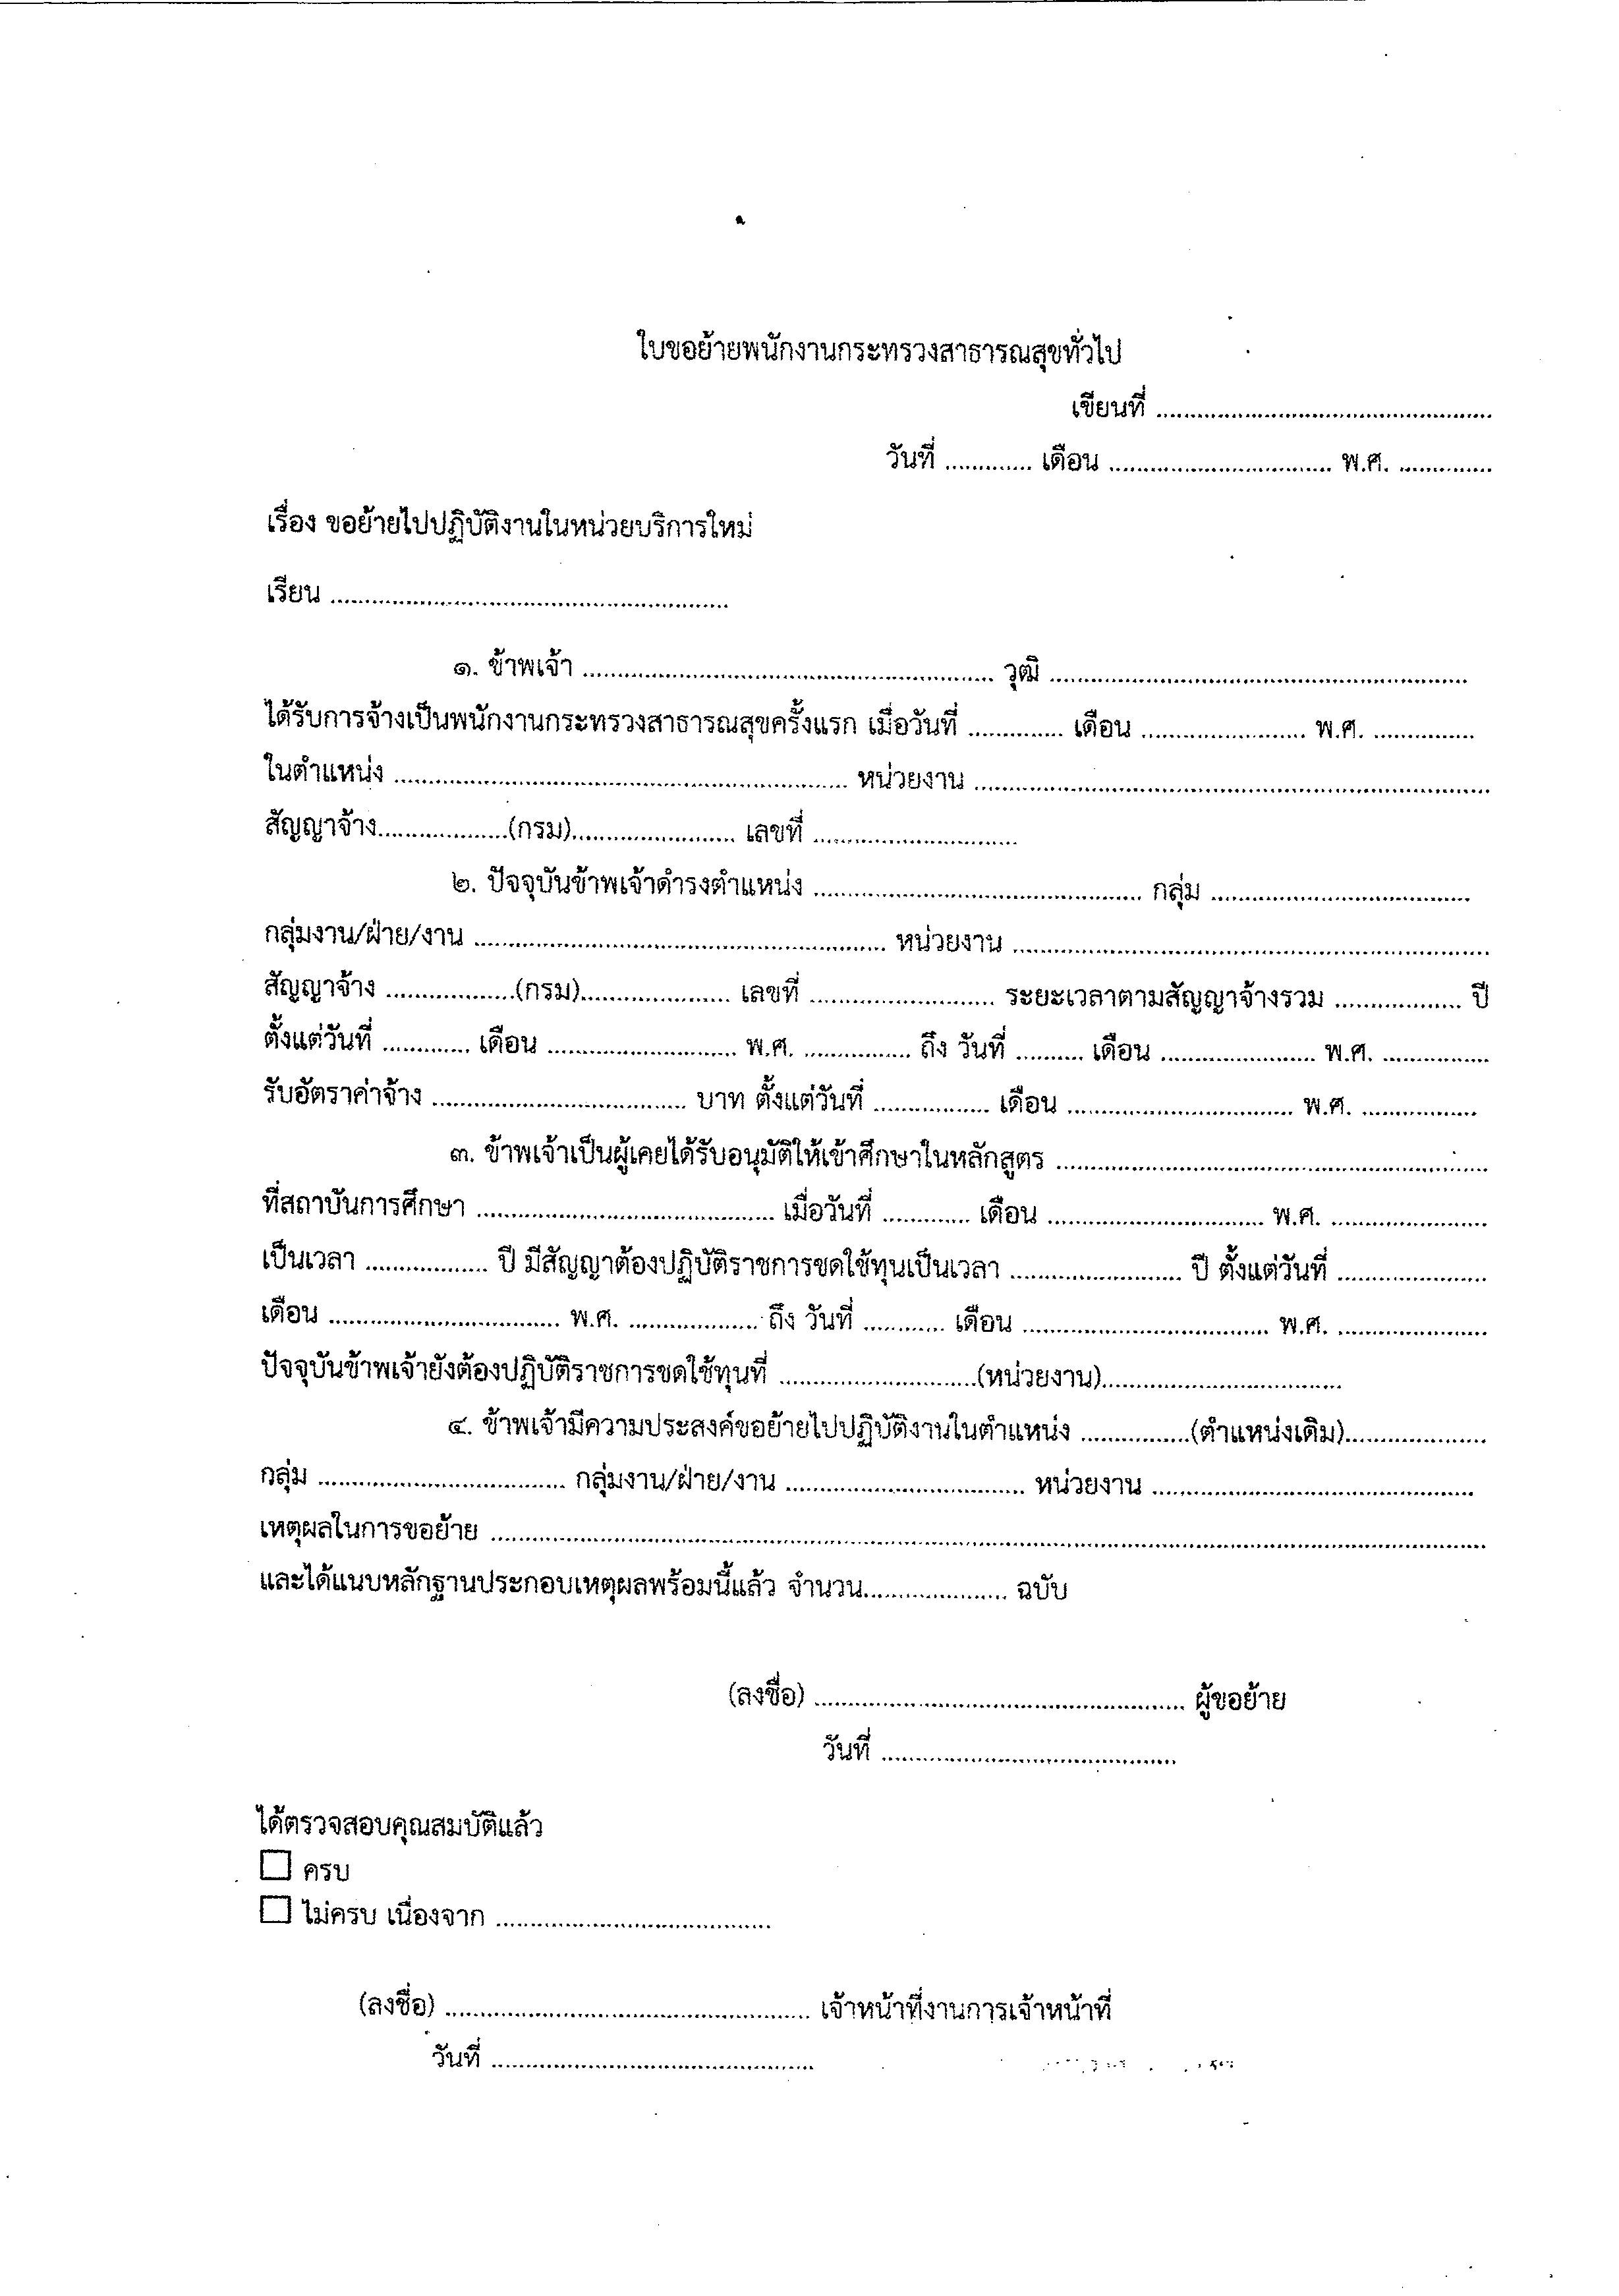 ใบขอย้ายพนักงานกระทรวงสาธารณสุขทั่วไป
เขียนที่ ........................................................
วันที่ .............. เดือน ...................................... พ.ศ. ................
เรื่อง ขอย้ายไปปฏิบัติงานในหน่วยบริการใหม่
เรียน ..................................................................
๑. ข้าพเจ้า .................................................................... วุฒิ .....................................................................
ได้รับการจ้างเป็นพนักงานกระทรวงสาธารณสุขครั้งแรก เมื่อวันที่ ................ เดือน ........................... พ.ศ. .................
ในตำแหน่ง ........................................................................... หน่วยงาน .....................................................................................
สัญญาจ้าง.....................(กรม)........................... เลขที่ ..................................
๒. ปัจจุบันข้าพเจ้าดำรงตำแหน่ง ...................................................... กลุ่ม ...........................................
กลุ่มงาน/ฝ่าย/งาน .................................................................... หน่วยงาน ...............................................................................
สัญญาจ้าง .....................(กรม)......................... เลขที่ ............................... ระยะเวลาตามสัญญาจ้างรวม ..................... ปี
ตั้งแต่วันที่ .............. เดือน ............................... พ.ศ. .................. ถึง วันที่ ........... เดือน ......................... พ.ศ. ..................
รับอัตราค่าจ้าง .......................................... บาท ตั้งแต่วันที่ ................... เดือน ..................................... พ.ศ. ...................
๓. ข้าพเจ้าเป็นผู้เคยได้รับอนุมัติให้เข้าศึกษาในหลักสูตร .......................................................................
ที่สถาบันการศึกษา ................................................. เมื่อวันที่ .............. เดือน .................................... พ.ศ. ..........................
เป็นเวลา .................... ปี มีสัญญาต้องปฏิบัติราชการชดใช้ทุนเป็นเวลา ............................ ปี ตั้งแต่วันที่ .........................
เดือน ...................................... พ.ศ. ..................... ถึง วันที่ ............. เดือน ......................................... พ.ศ. .........................
ปัจจุบันข้าพเจ้ายังต้องปฏิบัติราชการชดใช้ทุนที่ .................................(หน่วยงาน)........................................
๔. ข้าพเจ้ามีความประสงค์ขอย้ายไปปฏิบัติงานในตำแหน่ง ..................(ตำแหน่งเดิม).......................
กลุ่ม ......................................... กลุ่มงาน/ฝ่าย/งาน ........................................ หน่วยงาน .....................................................
เหตุผลในการขอย้าย ....................................................................................................................................................................
และได้แนบหลักฐานประกอบเหตุผลพร้อมนี้แล้ว จำนวน........................ ฉบับ
(ลงชื่อ) ............................................................. ผู้ขอย้าย
วันที่ .................................................
ได้ตรวจสอบคุณสมบัติแล้ว
☐ ครบ
☐ ไม่ครบ เนื่องจาก .............................................
(ลงชื่อ) ............................................................. เจ้าหน้าที่งานการเจ้าหน้าที่
วันที่ .....................................................